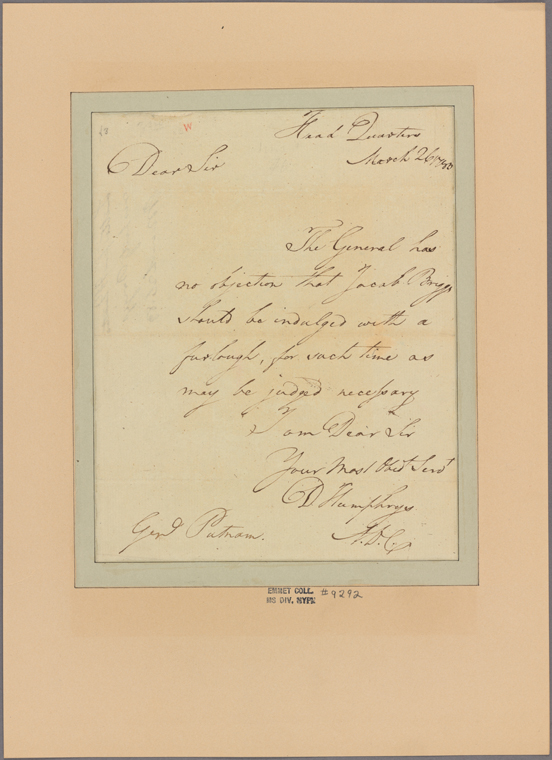 W
Head Quarters
March 26
Dear Sir
The General has
no objection that Jacob Briggs
should be indulged with a
furlough, for such time as
may be judged necessary
I am Dear Sir
Your Most Obed.t Serv.t
D Humphrys
Gen.l Putnam.
A.D.C.
EMMET COLL. #9292
MS DIV. NYPL